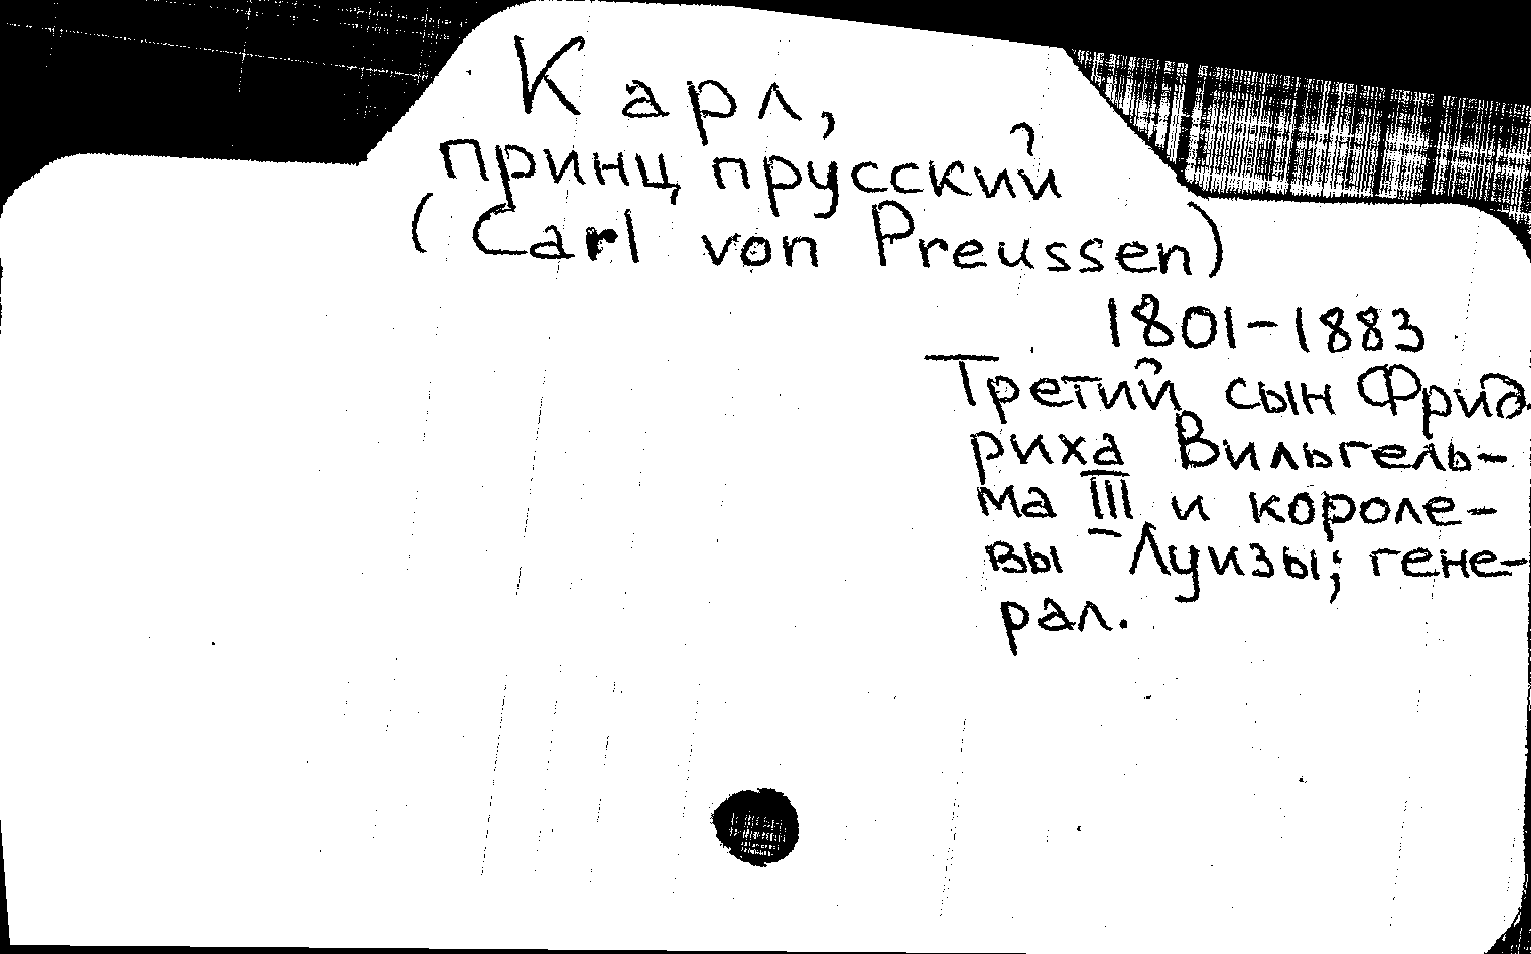 Карл,
принц прусский
(Carl von Preussen)
1801-1883
Третий сын Фрид
риха Вильгель-
ма III и короле-
вы Луизы; гене-
рал.